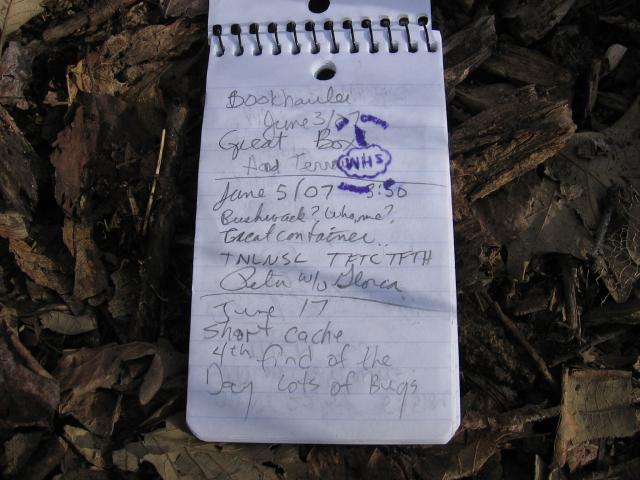 Bookhauler
June 3/07
Great Box
And Terr
WHS
June 5/07 3:50
Bushwack? Who, me?
Great container..
TNLNSL TFTC TFTH
w/o
June 17
Short cache
4th find of the
Day Lots of Bugs